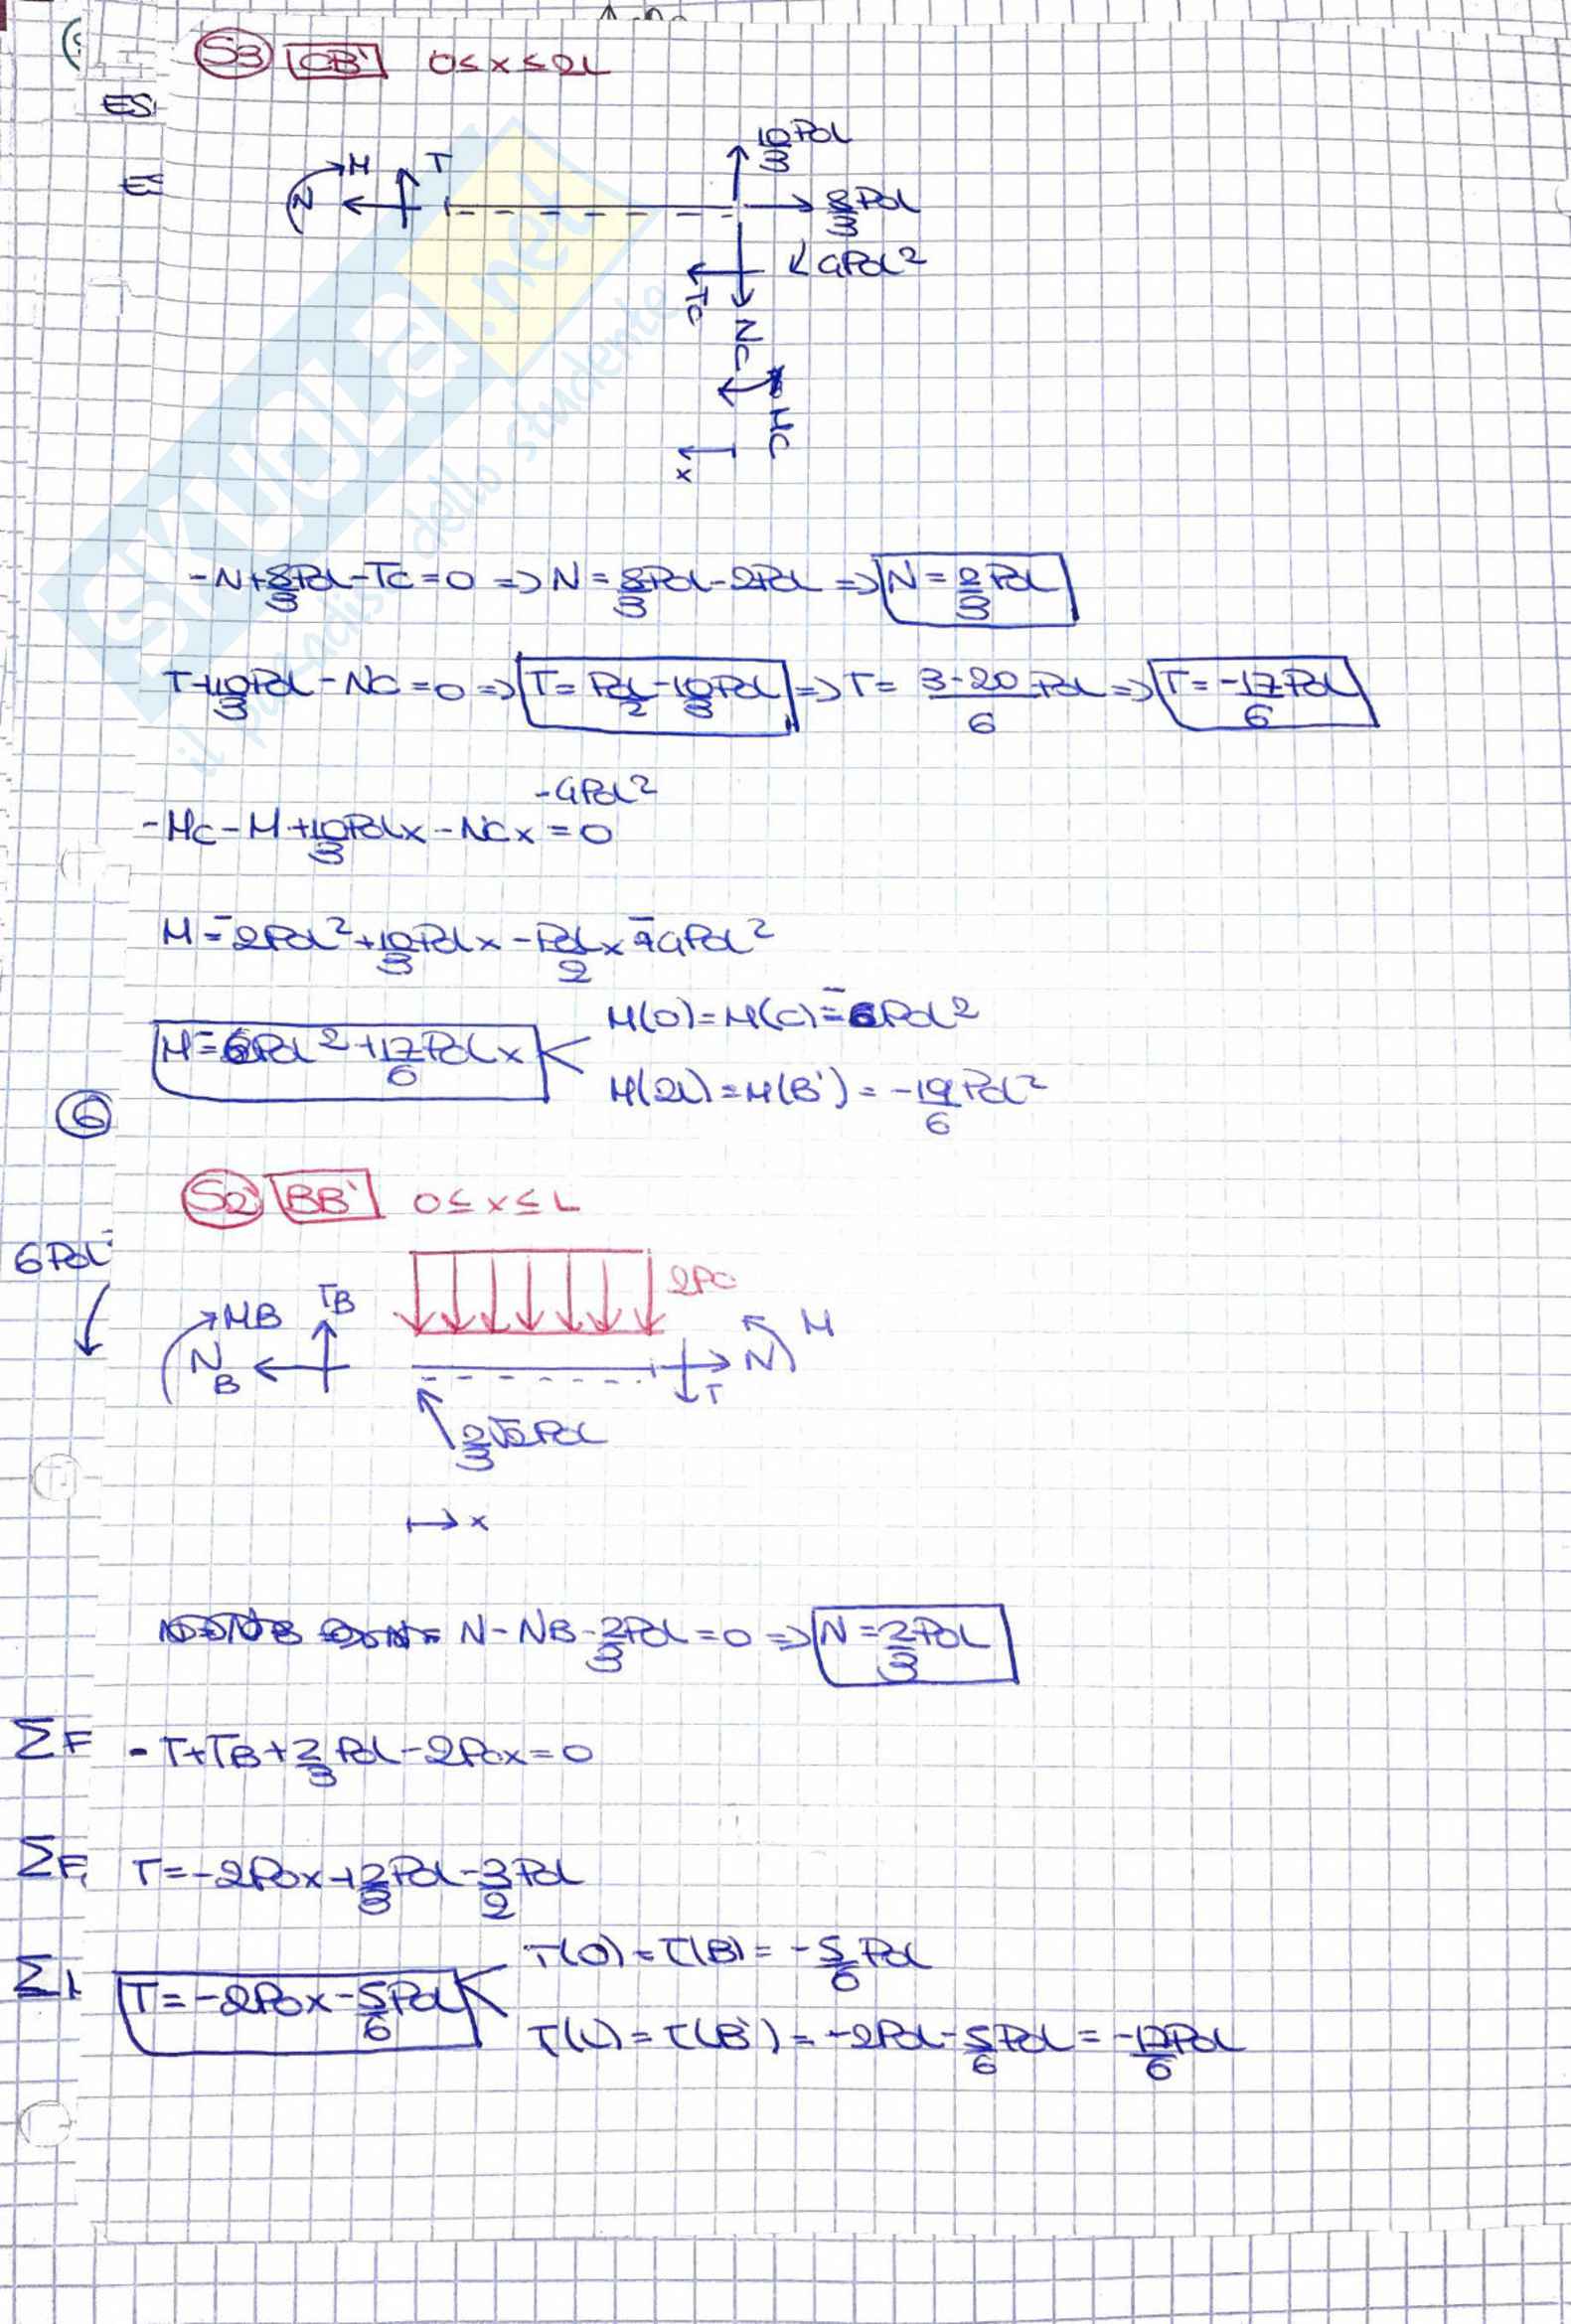 S3 CB' 0≤x≤2L
ES
E
M T N
10/3 PoL
8/3 PoL
4PoL²
Tc
Nc
Mc
x
-N+8/3PoL-Tc=0 => N=8/3PoL-2PoL => N=2/3PoL
T+10/3PoL-Nc=0 => T=PoL/2-10/3PoL => T=3-20/6 PoL => T=-17/6PoL
-4PoL²
-Mc-M+10/3PoLx-Ncx=0
M=-2PoL²+10/3PoLx-PoL/2x-4PoL²
M=-6PoL²+17/6PoLx
M(0)=M(C)=-6PoL²
M(2L)=M(B')=-19/6PoL²
6
S2 BB' 0≤x≤L
6PoL
2Po
MB TB NB
M N T
2/3√2PoL
x
N-NB-2/3PoL=0 => N=2/3PoL
ΣF -T+TB+2/3PoL-2Pox=0
ΣF T=-2Pox+2/3PoL-3/2PoL
T(0)=T(B)=-5/6PoL
Σ T=-2Pox-5/6PoL
T(L)=T(B')=-2PoL-5/6PoL=-17/6PoL
SKUOLA.net
il paradiso dello studente